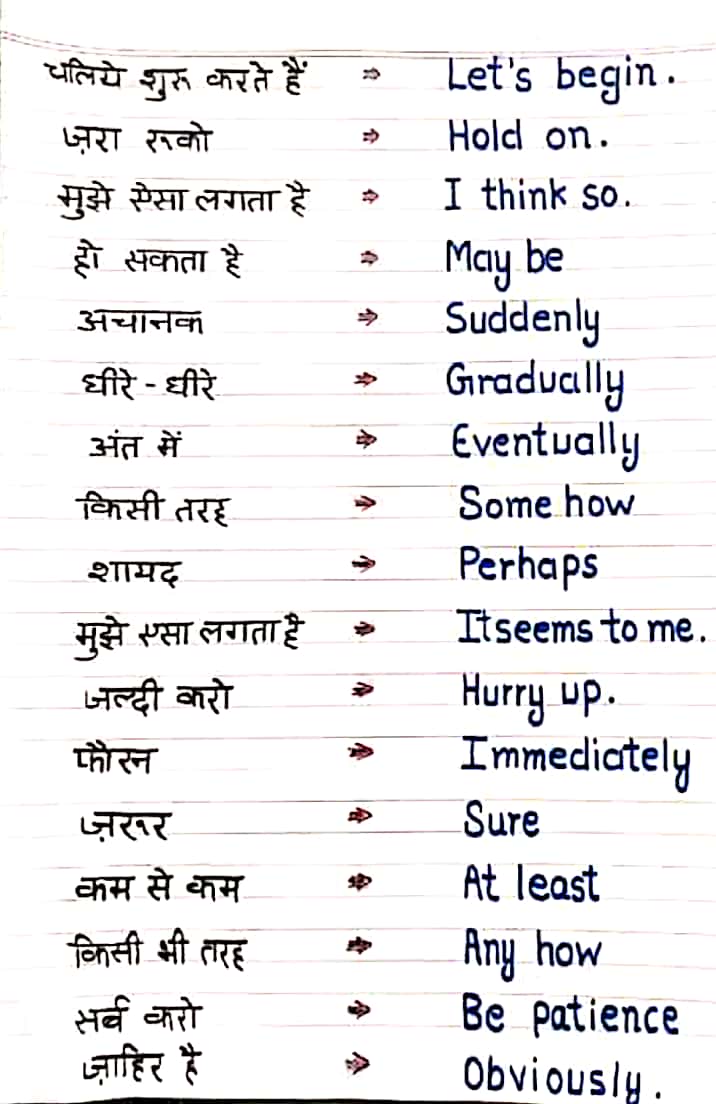 चलिये शुरू करते हैं ⇒ Let's begin.
ज़रा रूको ⇒ Hold on.
मुझे ऐसा लगता है ⇒ I think so.
हो सकता है ⇒ May be
अचानक ⇒ Suddenly
धीरे - धीरे ⇒ Gradually
अंत में ⇒ Eventually
किसी तरह ⇒ Some how
शायद ⇒ Perhaps
मुझे एसा लगता है ⇒ It seems to me.
जल्दी करो ⇒ Hurry up.
फौरन ⇒ Immediately
ज़रूर ⇒ Sure
कम से कम ⇒ At least
किसी भी तरह ⇒ Any how
सर्ब करो ⇒ Be patience
ज़ाहिर है ⇒ Obviously.